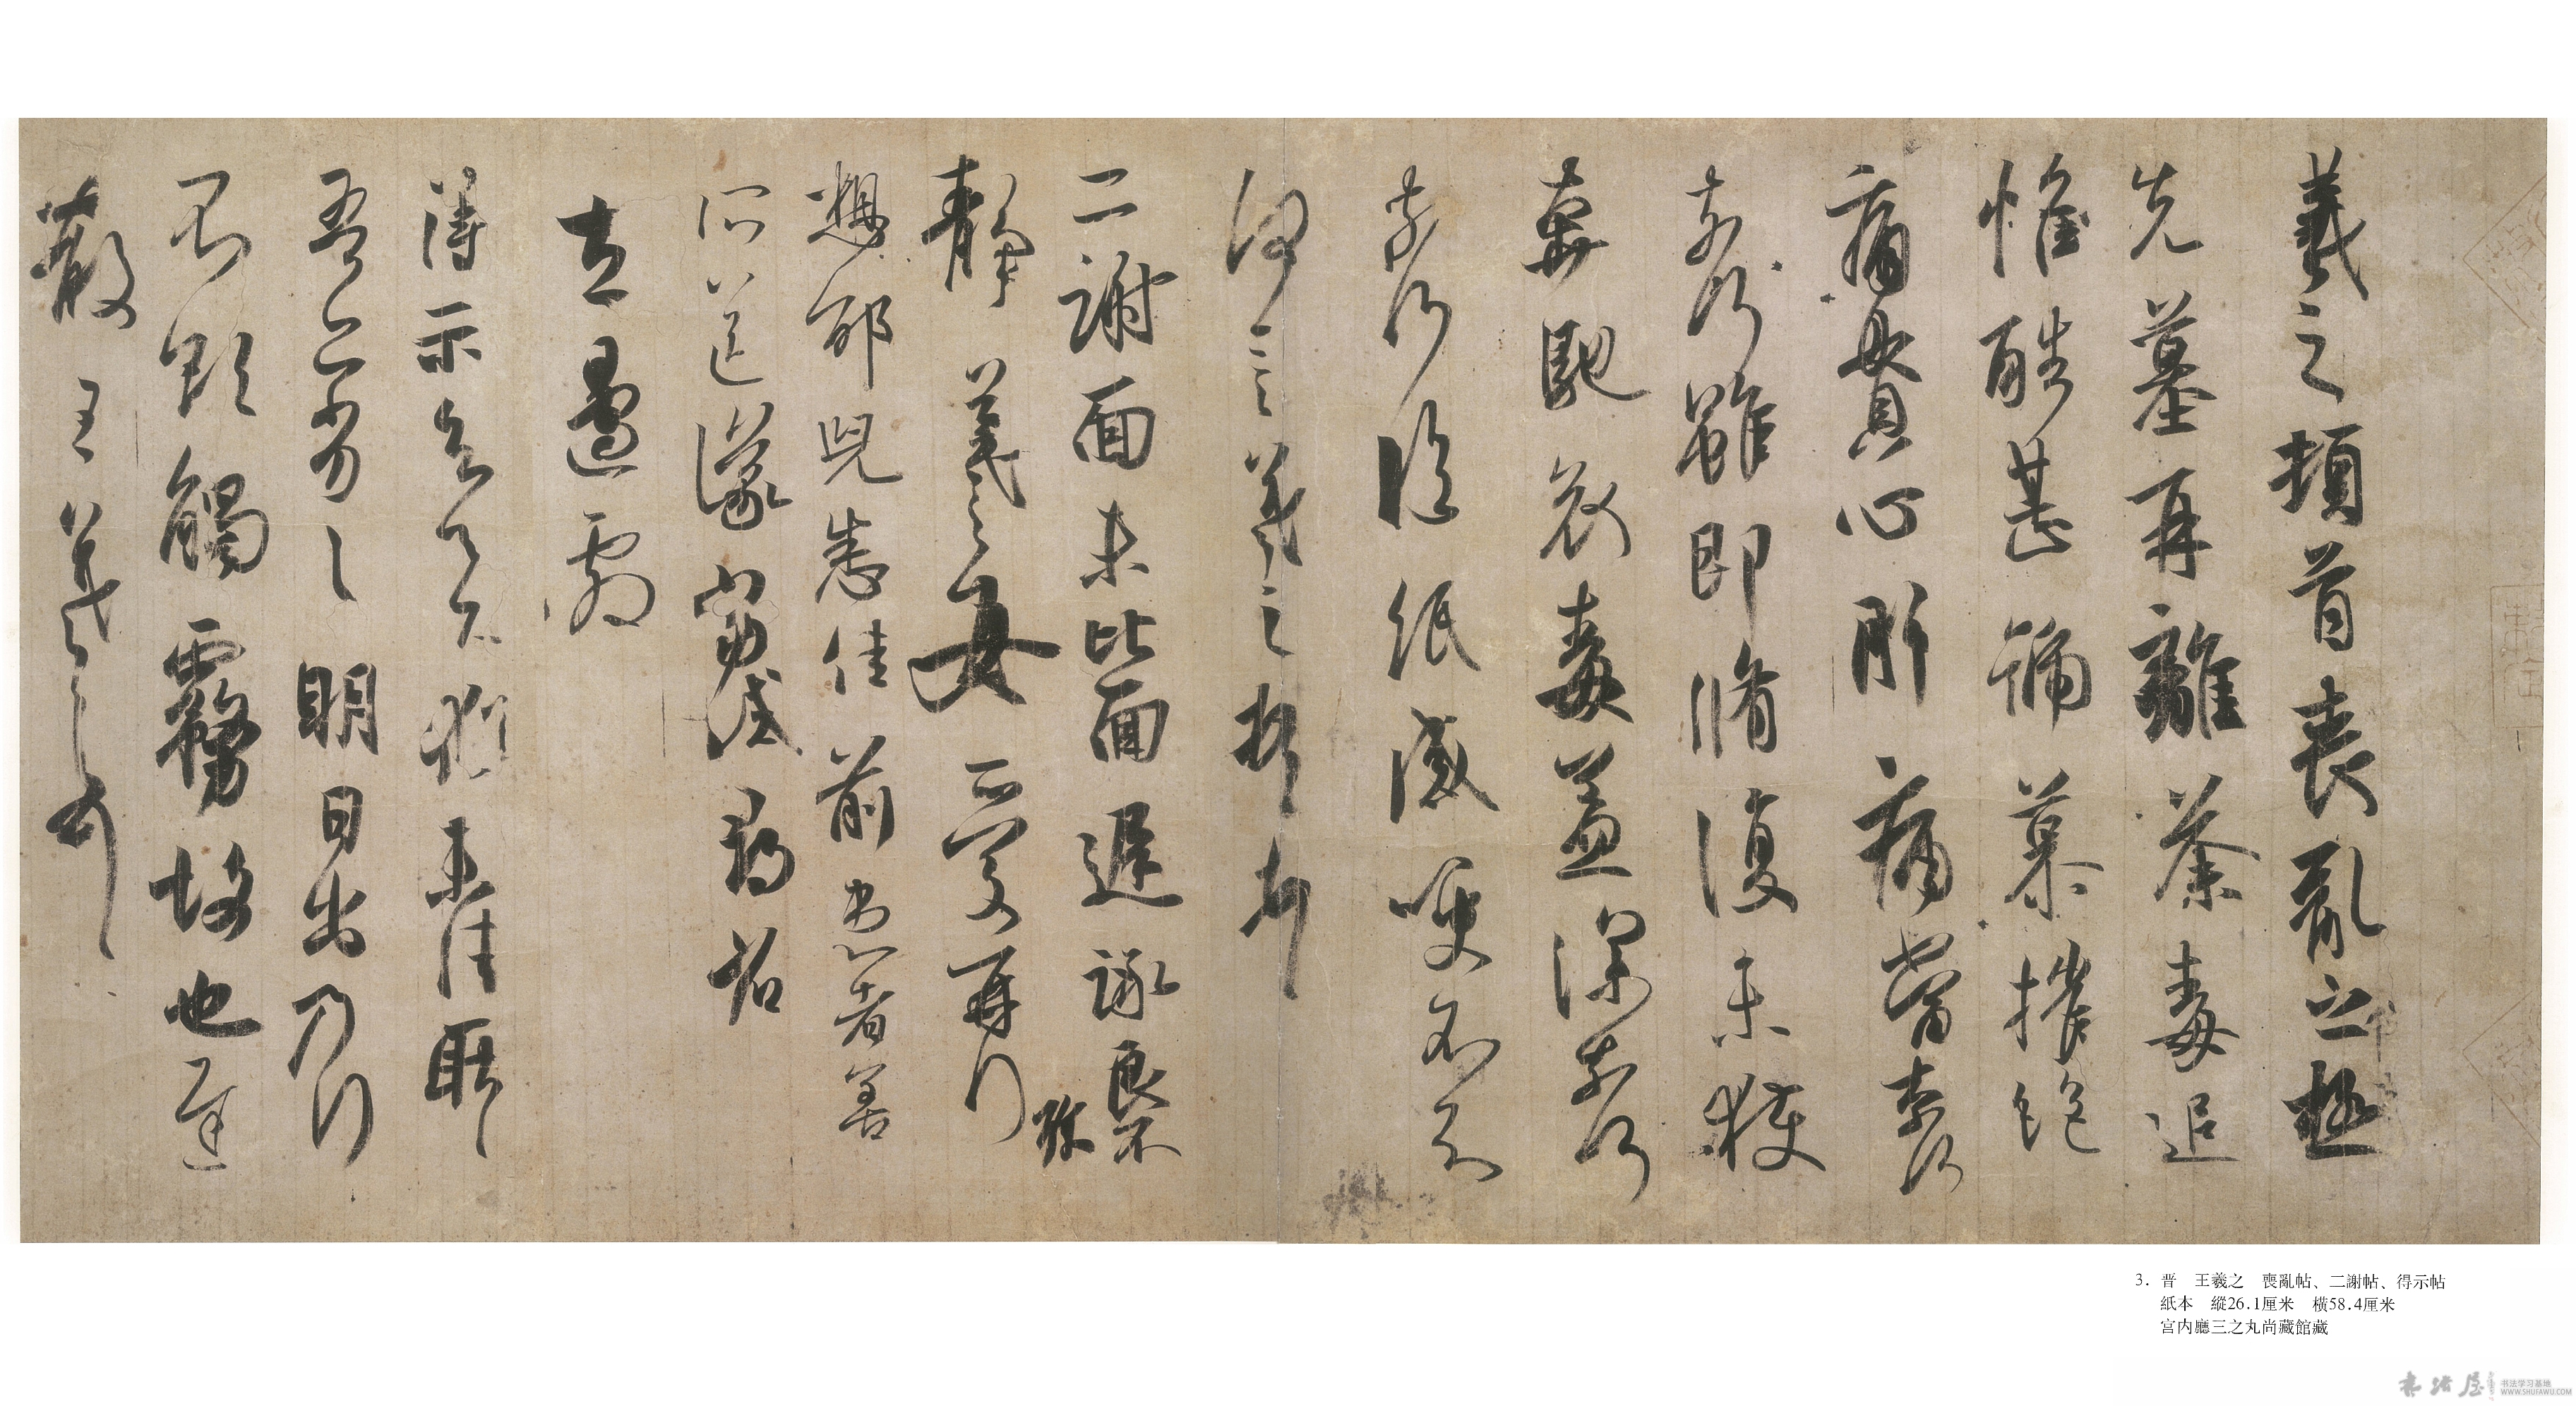 羲之頓首喪亂之極
先墓再離荼毒追
惟酷甚號慕摧絕
痛貫心肝痛當奈何
奈何雖即脩復未獲
奔馳哀毒益深奈何
奈何臨紙感哽不知
何言羲之頓首頓首
二謝面未比面遲詠良不
靜羲之女愛愛再拜
想邰兒悉佳前患者善
所送議當試尋省
左邊劇
得示知足下猶未佳耿耿
吾亦劣劣明日出乃行
不欲觸霧故也遲
散王羲之頓首
3. 晋 王羲之 喪亂帖、二謝帖、得示帖
紙本 縱26.1厘米 横58.4厘米
宫内廳三之丸尚藏館藏
书法屋
书法学习基地
WWW.SHUFAWU.COM